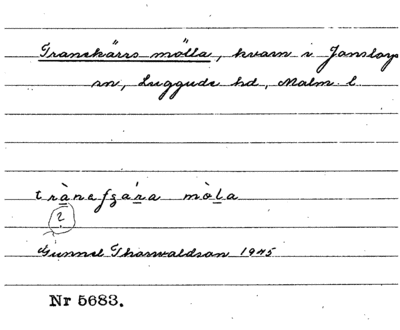 Tranekärrs mölla, kvarn i Jonstorps
sn, Luggude hd, Malm. l.
trànafzára mòla
?
Gunnel Thorwaldson 1945
Nr 5683.